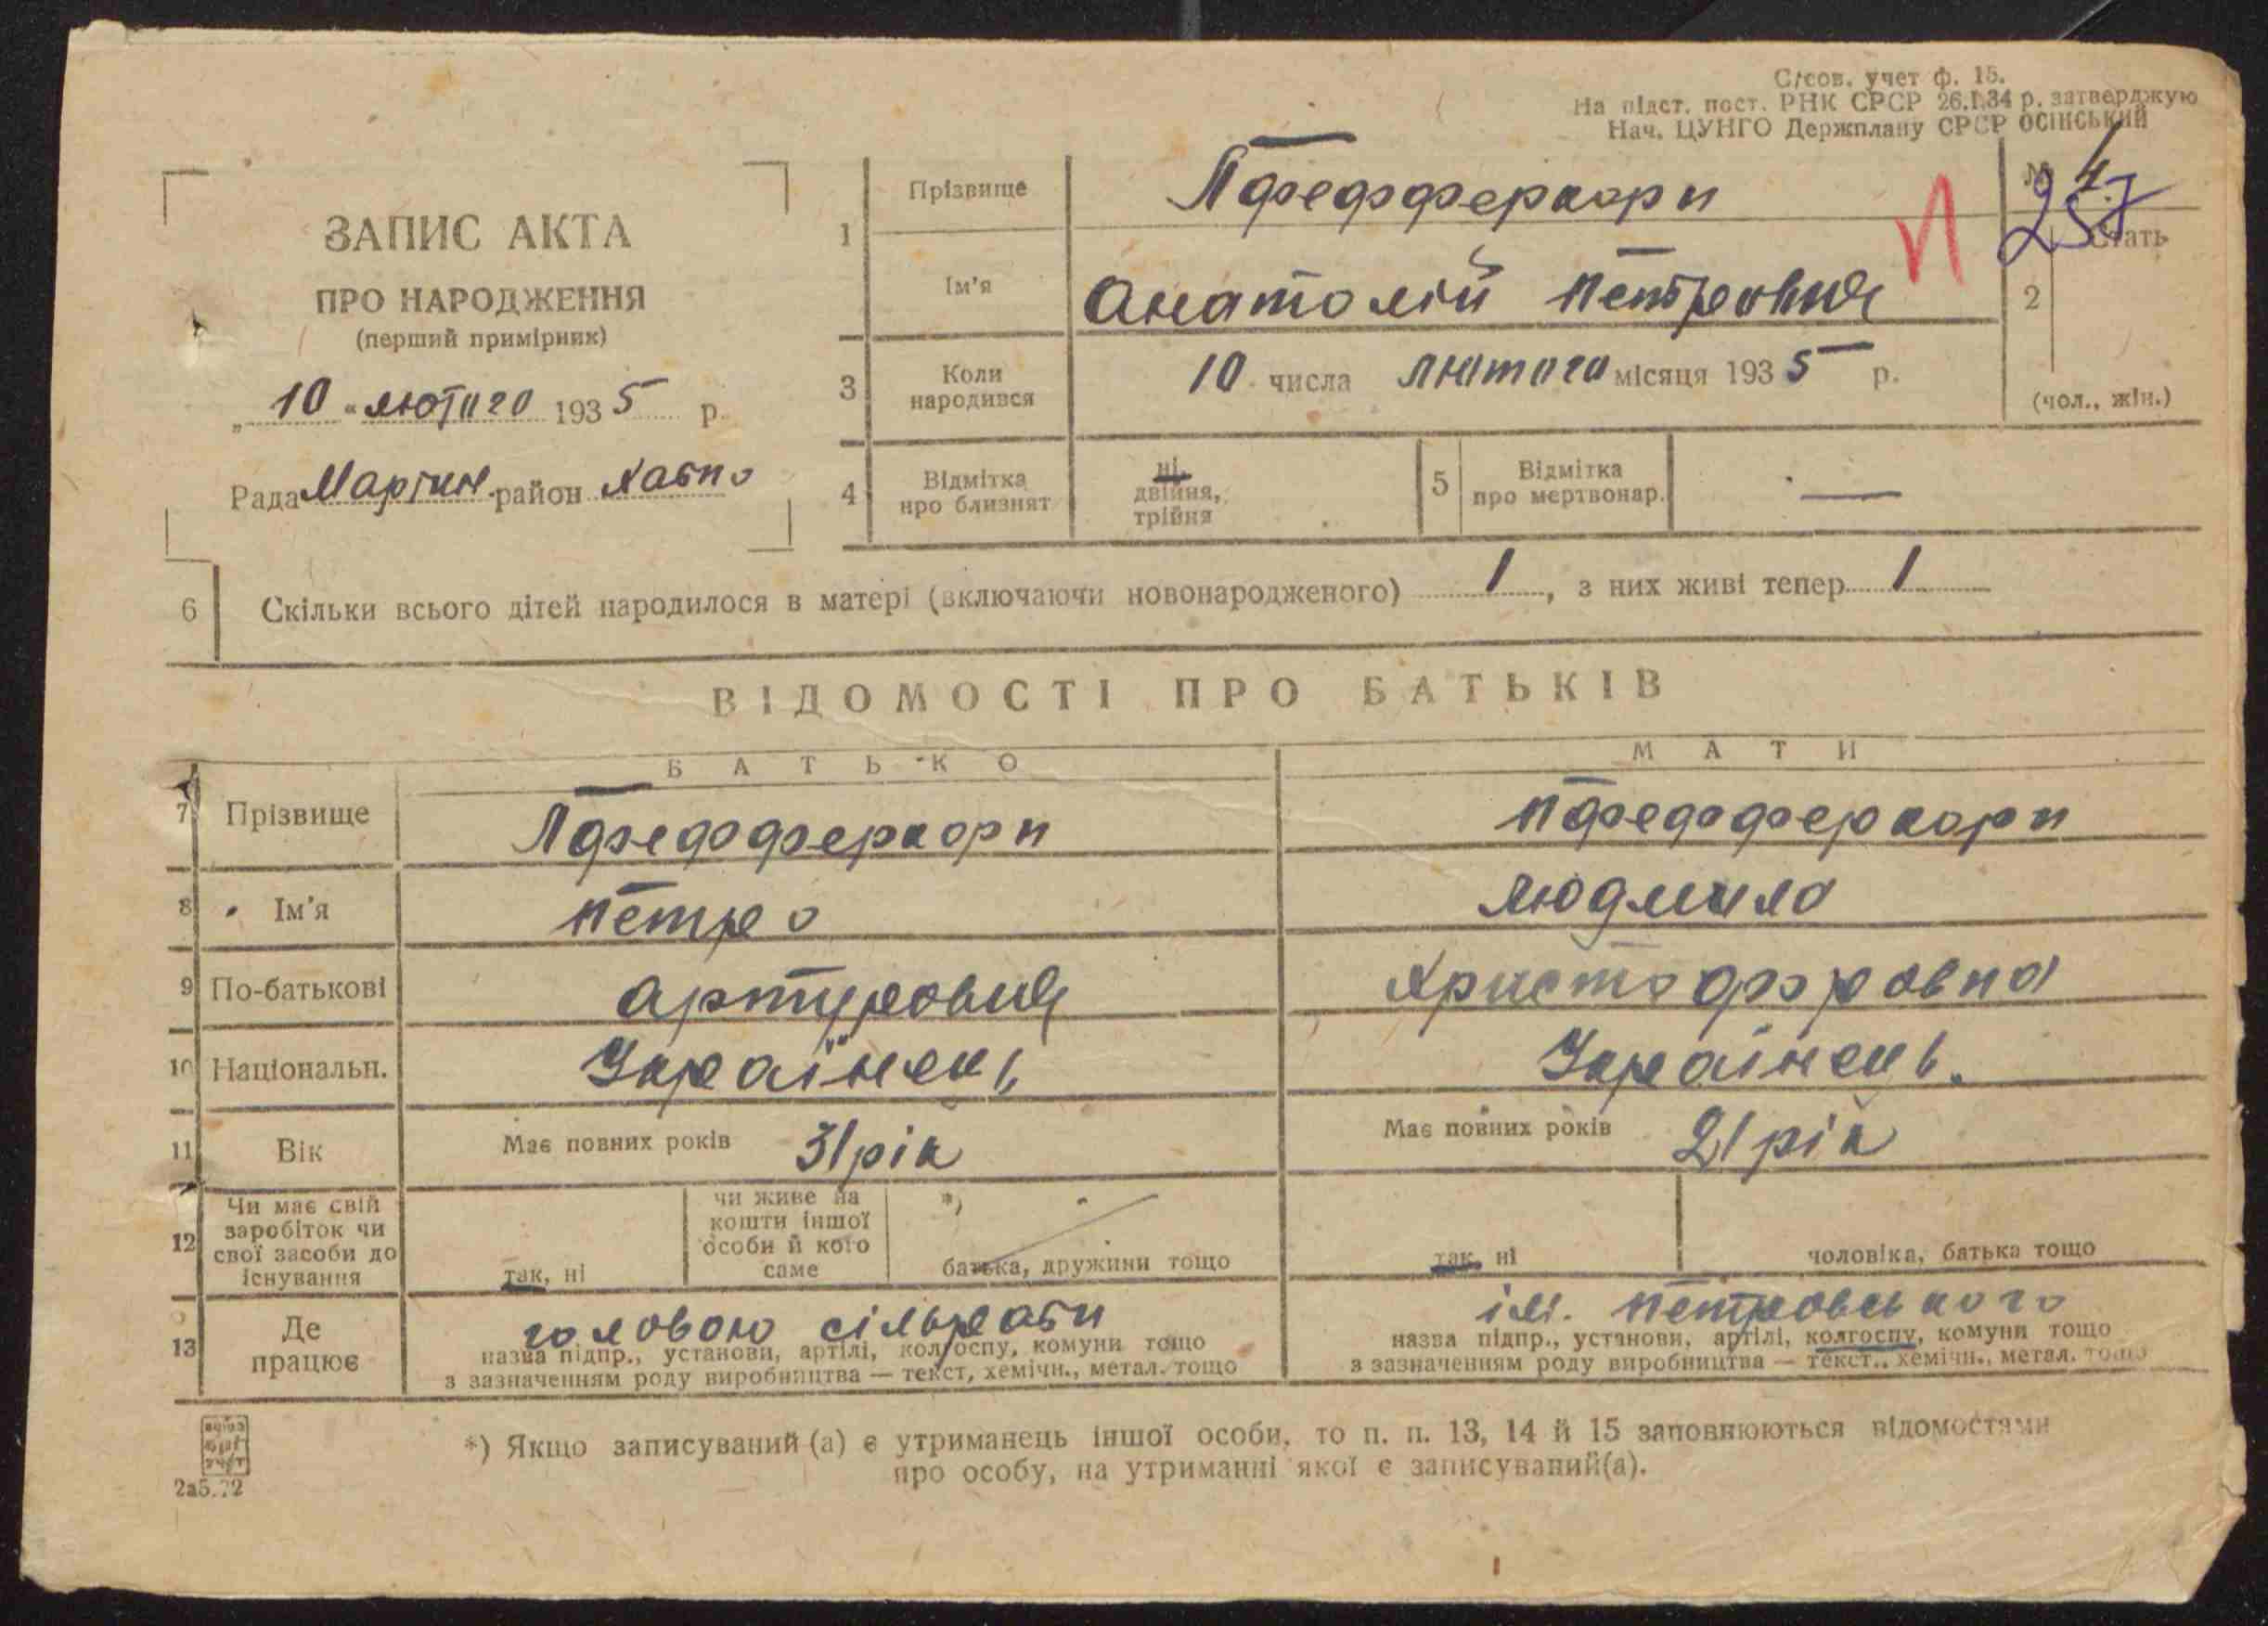 С/сов. учет ф. 15.
На підст. пост. РНК СРСР 26.I.34 р. затверджую
Нач. ЦУНГО Держплану СРСР ОСІНСЬКИЙ
ЗАПИС АКТА
ПРО НАРОДЖЕННЯ
(перший примірник)
„ 10 “ лютого 1935 р.
Рада Мар'ян. район Хабно
1 Прізвище Пфефферкорн
Ім'я Анатолій Петрович
№ 4
257
2 Стать
(чол., жін.)
3 Коли народився 10 числа лютого місяця 1935 р.
4 Відмітка про близнят ні, двійня, трійня
5 Відмітка про мертвонар. —
6 Скільки всього дітей народилося в матері (включаючи новонародженого) 1, з них живі тепер 1
ВІДОМОСТІ ПРО БАТЬКІВ
БАТЬКО МАТИ
7 Прізвище Пфефферкорн Пфефферкорн
8 Ім'я Петро Людмила
9 По-батькові Артурович Христофоровна
10 Національн. Українець Українець.
11 Вік Має повних років 31 рік Має повних років 21 рік
12 Чи має свій заробіток чи свої засоби до існування так, ні чи живе на кошти іншої особи й кого саме *) батька, дружини тощо так, ні чоловіка, батька тощо
13 Де працює головою сільради ім. Петровського
назва підпр., установи, артілі, колгоспу, комуни тощо назва підпр., установи, артілі, колгоспу, комуни тощо
з зазначенням роду виробництва — текст, хемічн., метал. тощо з зазначенням роду виробництва — текст., хемічн., метал. тощо
*) Якщо записуваний (а) є утриманець іншої особи, то п. п. 13, 14 й 15 заповнюються відомостями
про особу, на утриманні якої є записуваний(а).